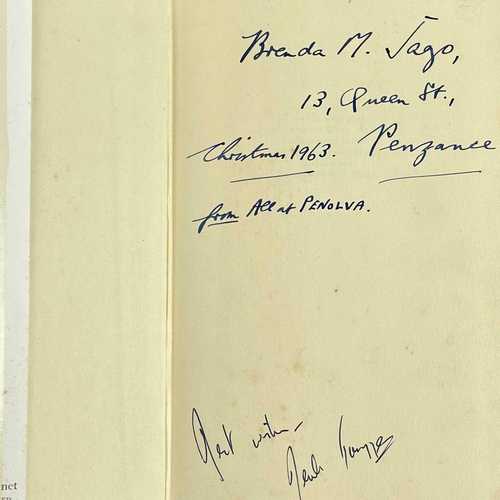 Brenda M. Jago,
13, Queen St.,
Christmas 1963. Penzance
from All at PENOLVA.
Best wishes
net